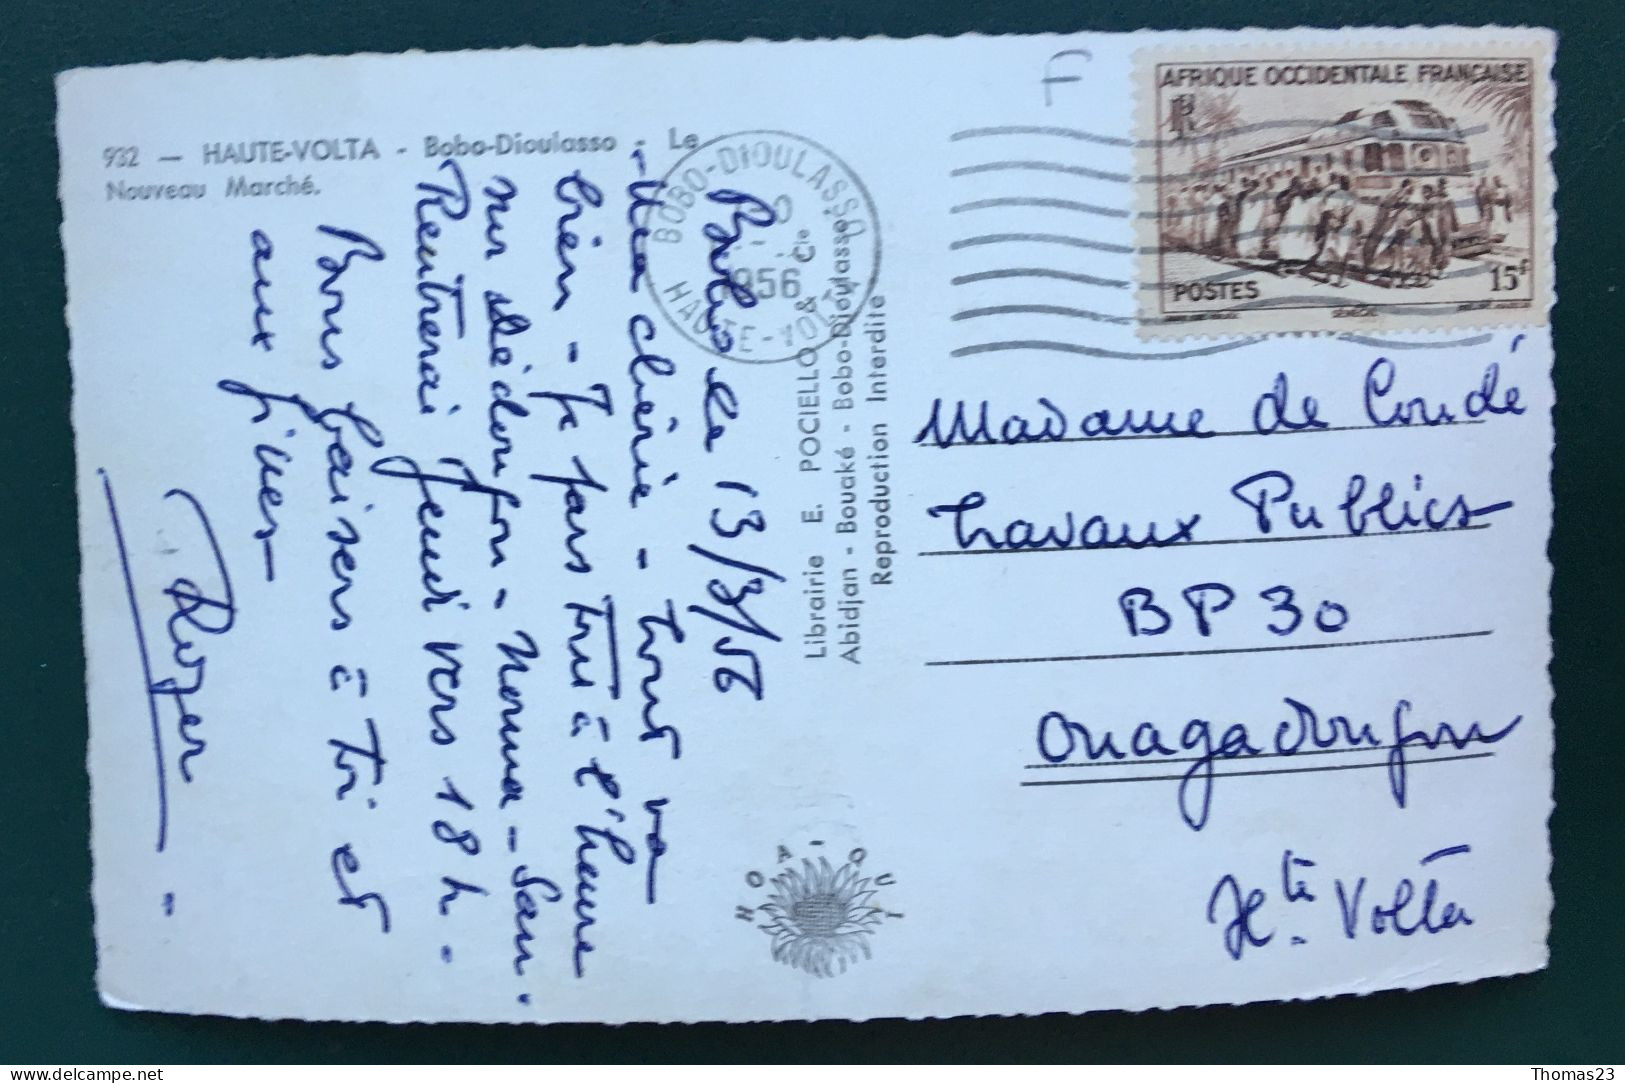 932 — HAUTE-VOLTA - Bobo-Dioulasso - Le
Nouveau Marché.
Bobo le 13/3/56
Ma chérie - tout va
bien - Je pars tout à l'heure
sur Dédougou - Nouna - San.
Rentrerai Jeudi vers 18 h.
Bons baisers à toi et
aux
Roger
Librairie E. POCIELLO & Cie
Abidjan - Bouaké - Bobo-Dioulasso
Reproduction Interdite
BOBO-DIOULASSO
956
HAUTE-VOLTA
F
AFRIQUE OCCIDENTALE FRANÇAISE
RF
POSTES
15F
SÉNÉGAL
Madame de Coudé
Travaux Publics
BP 30
Ouagadougou
Hte. Volta
delcampe.net
Thomas23